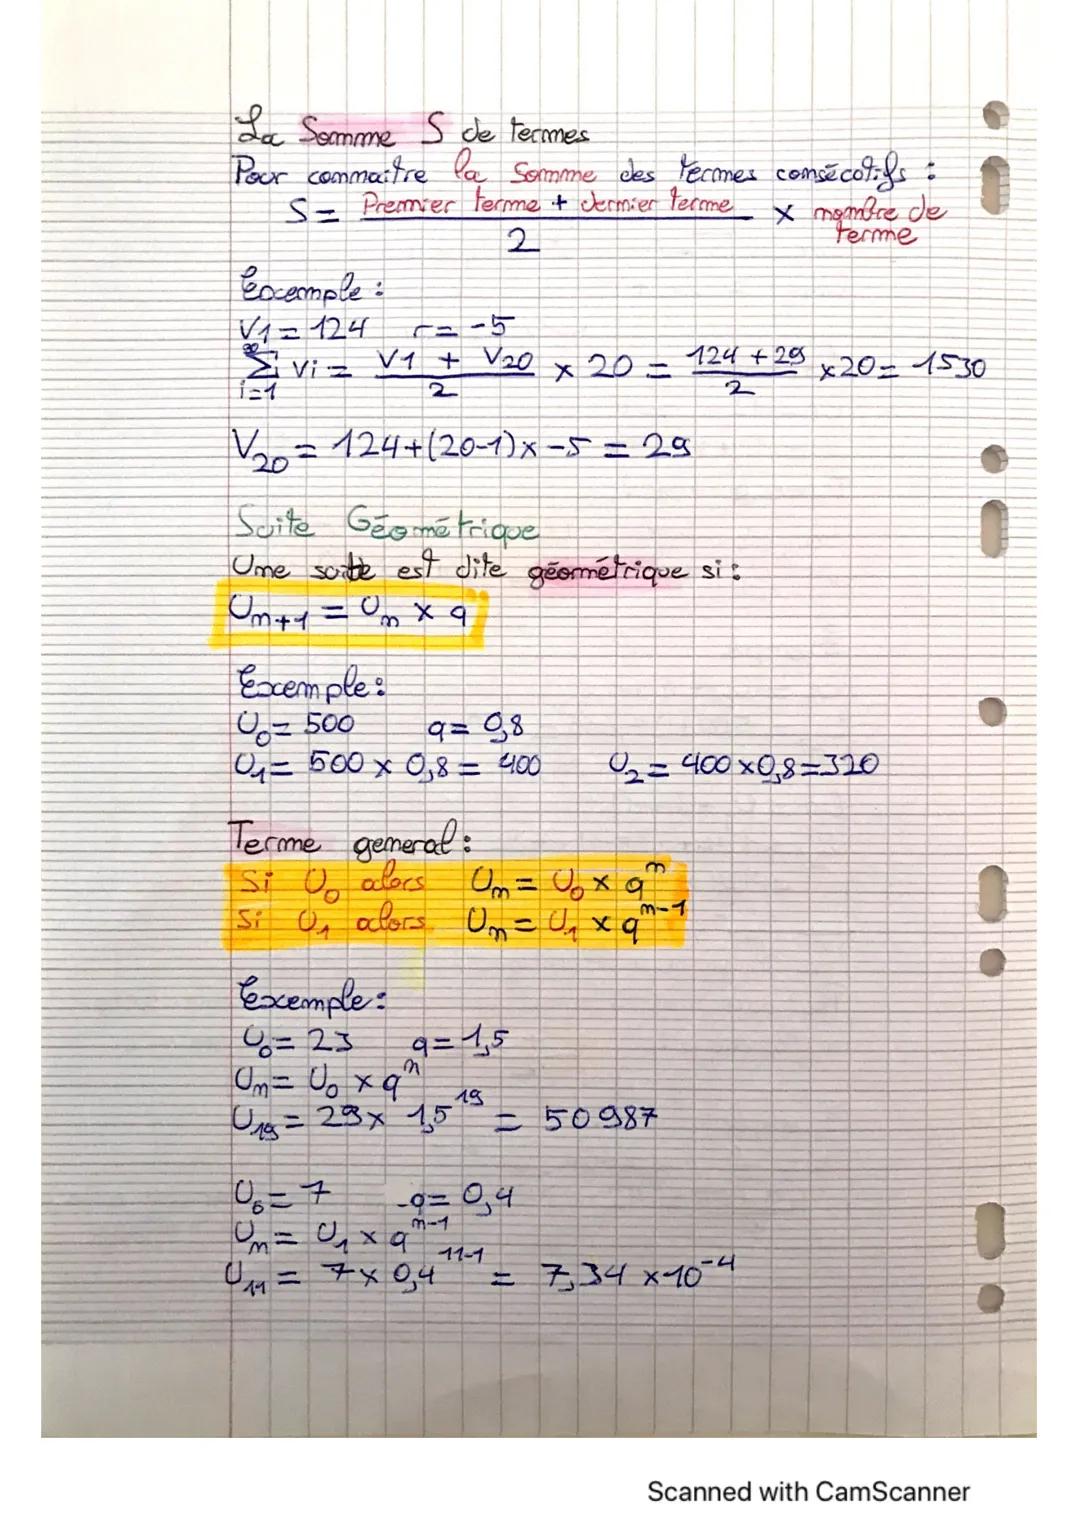 La Somme S de termes
Pour connaitre la Somme des termes consécutifs :
S = Premier terme + dernier terme / 2 × nombre de terme
Exemple :
V1 = 124 r = -5
20 ∑ i=1 Vi = V1 + V20 / 2 × 20 = 124 + 29 / 2 × 20 = 1530
V20 = 124+(20-1)× -5 = 29
Suite Géométrique
Une suite est dite géométrique si :
Un+1 = Un × q
Exemple :
U0 = 500 q = 0,8
U1 = 500 × 0,8 = 400 U2 = 400 × 0,8 = 320
Terme general :
Si U0 alors Un = U0 × q^n
Si U1 alors Un = U1 × q^n-1
Exemple :
U0 = 23 q = 1,5
Un = U0 × q^n
U19 = 23 × 1,5^19 = 50 987
= 7 q = 0,4
Un = U1 × q^n-1
U11 = 7 × 0,4^11-1 = 7,34 × 10^-4
Scanned with CamScanner